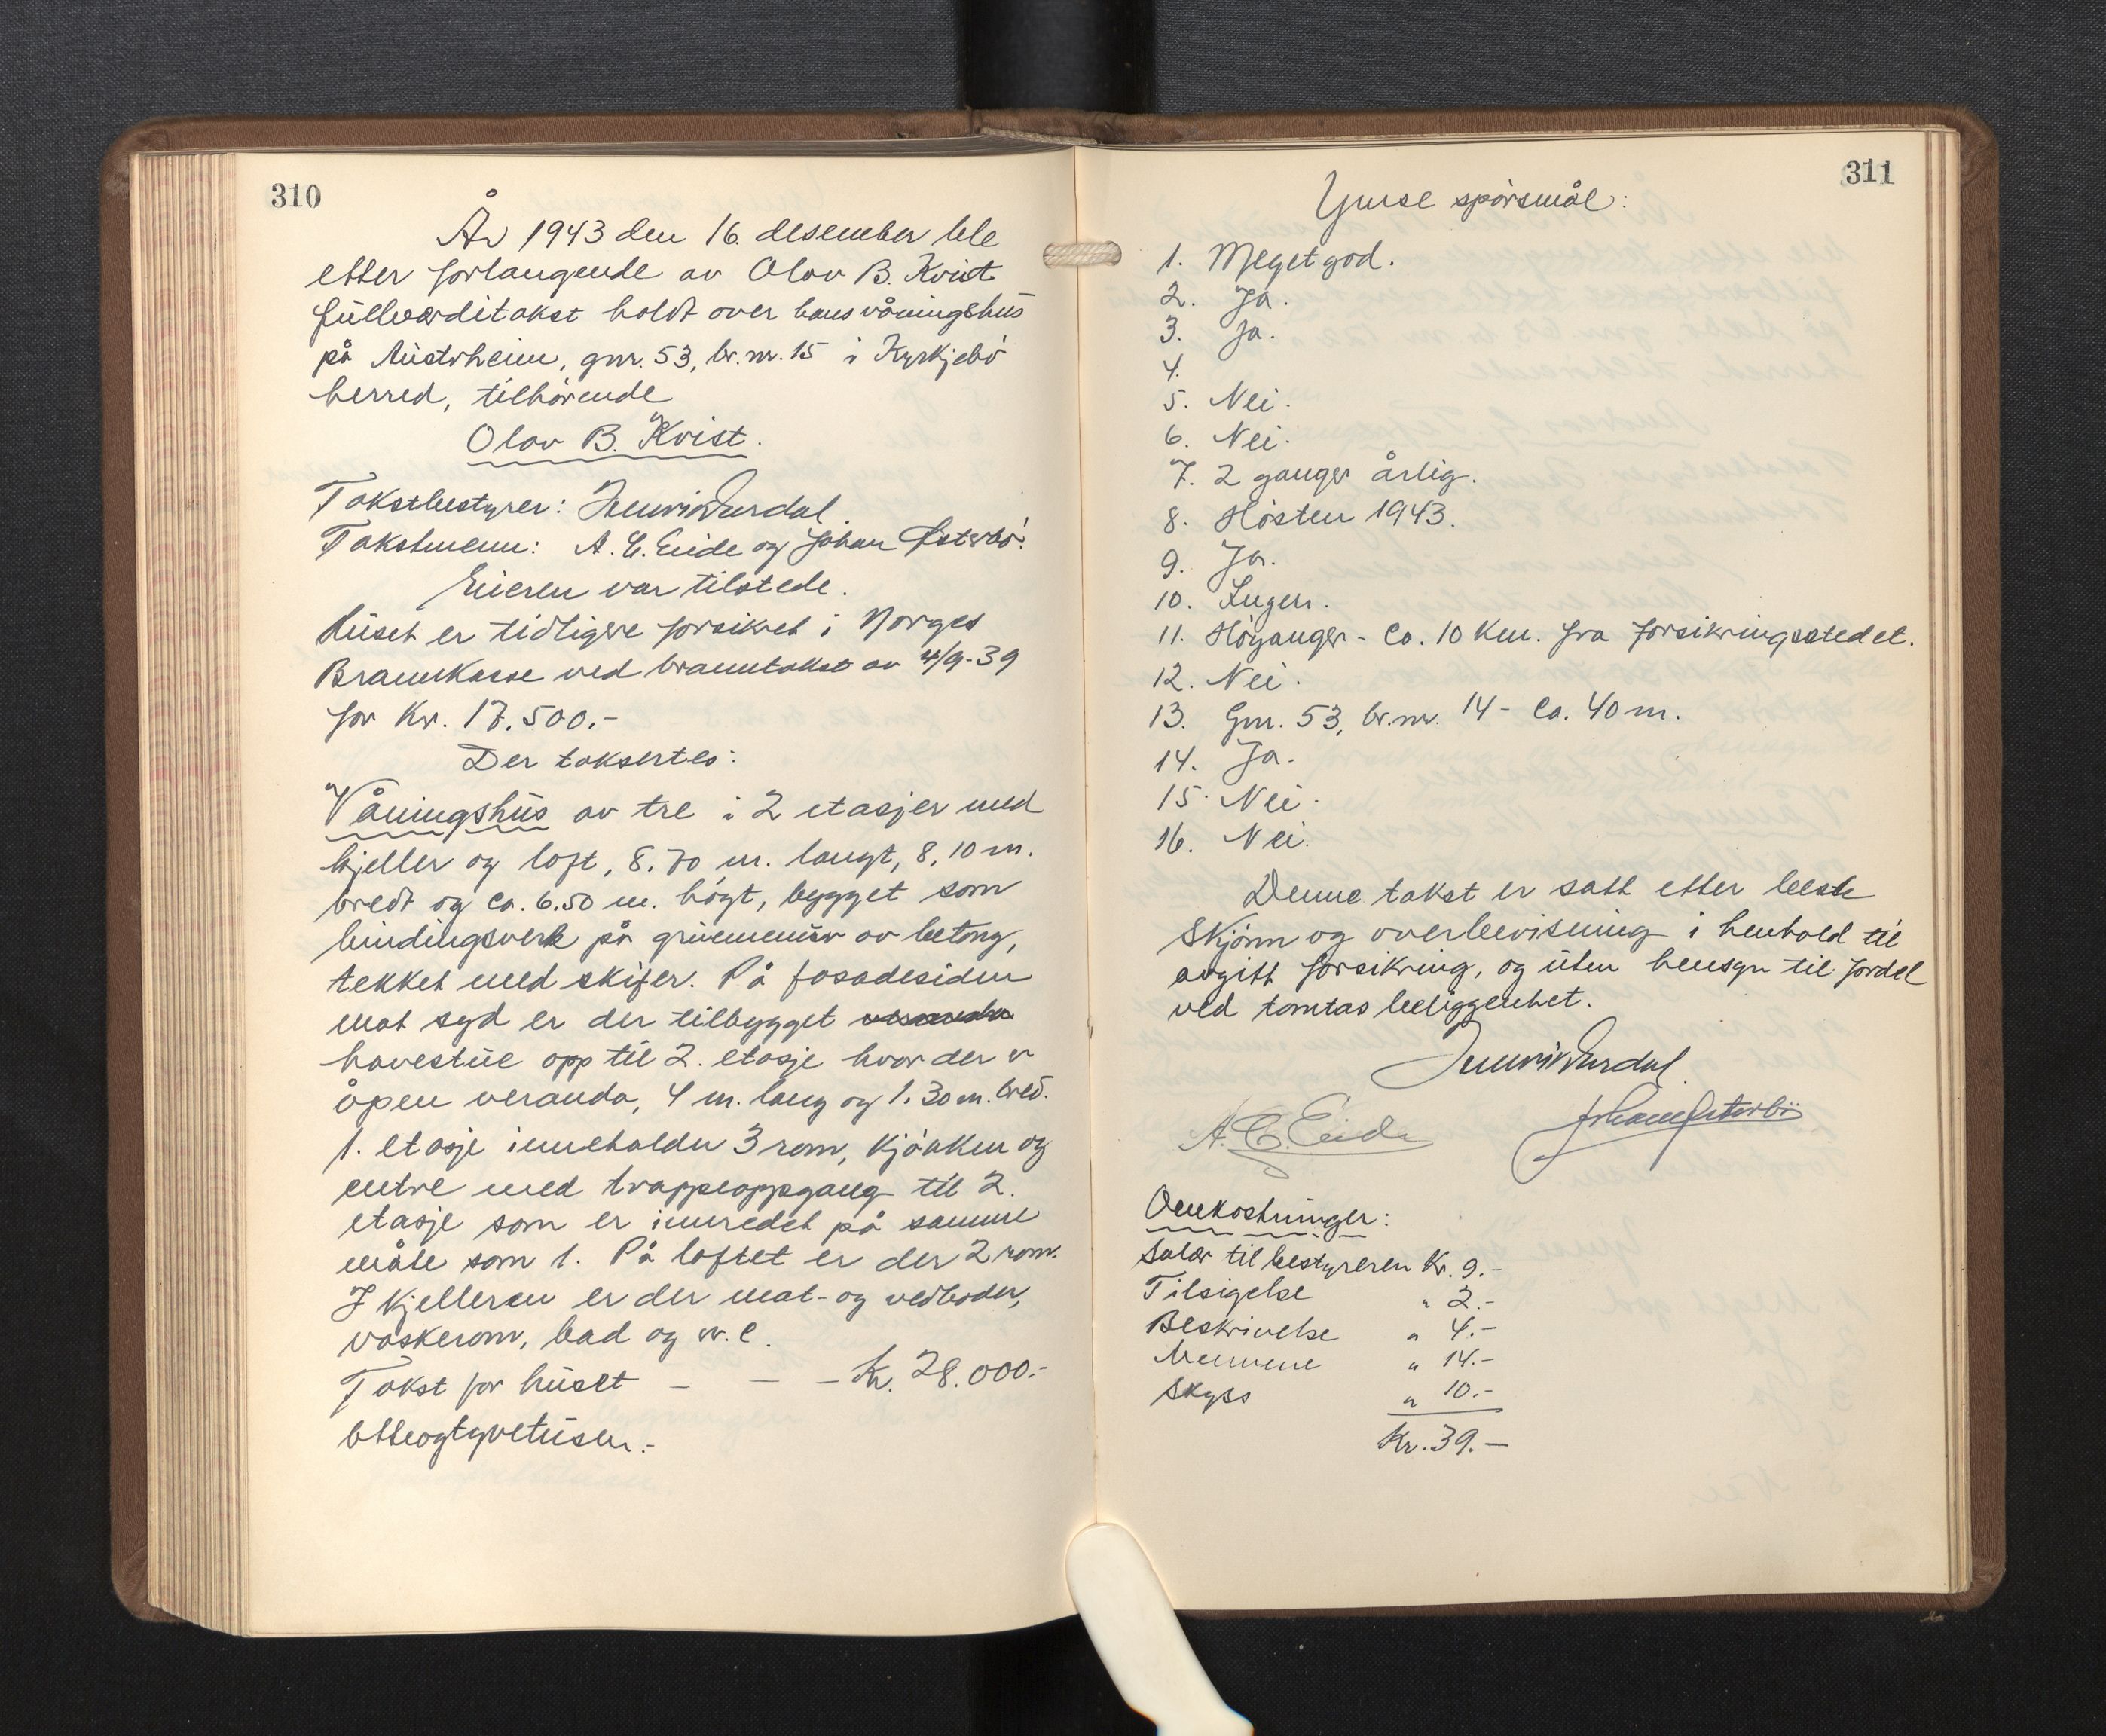 310
År 1943 den 16. desember ble
etter forlangende av Olav B. Kvist
fullverditakst holdt over hans våningshus
på Austrheim, gnr. 53, br.nr. 15 i Kyrkjebö
herred, tilhörende
Olav B. Kvist.
Takstbestyrer:
Takstmenn: A. C. Eide og Johan Østerbö.
Eieren var tilstede.
Huset er tidligere forsikret i Norges
Brannkasse ved branntakst av 4/9-39
for Kr. 17.500.-
Der taksertes:
Våningshus av tre i 2 etasjer med
kjeller og loft, 8.70 m. langt, 8,10 m.
bredt og ca. 6.50 m. högt, bygget som
bindingsverk på grunnmur av betong,
tekket med skifer. På fasadesiden
mot syd er der tilbygget veranda
havestue opp til 2. etasje hvor der er
åpen veranda, 4 m. lang og 1.30 m. bred.
1. etasje inneholder 3 rom, kjökken og
entre med trappeoppgang til 2.
etasje som er innredet på samme
måte som 1. På loftet er der 2 rom.
I kjelleren er der mat- og vedboder,
vaskerom, bad og w.c.
Takst for huset - - - Kr. 28.000.-
åtteogtyvetusen.-
311
Ymse spörsmål:
1. Meget god.
2. Ja.
3. Ja.
4.
5. Nei.
6. Nei.
7. 2 ganger årlig.
8. Hösten 1943.
9. Ja.
10. Ingen.
11. Höyanger - Ca. 10 Km. fra forsikringsstedet.
12. Nei.
13. Gnr. 53, br.nr. 14 - Ca. 40 m.
14. Ja.
15. Nei.
16. Nei.
Denne takst er satt etter beste
skjönn og overbevisning i henhold til
avgitt forsikring, og uten hensyn til fordel
ved tomtas beliggenhet.
A. C. Eide
Johan Østerbö
Omkostninger:
Salær til bestyreren Kr. 9.-
Tilsigelse " 2.-
Beskrivelse " 4.-
Mennene " 14.-
Skyss " 10.-
Kr. 39.-